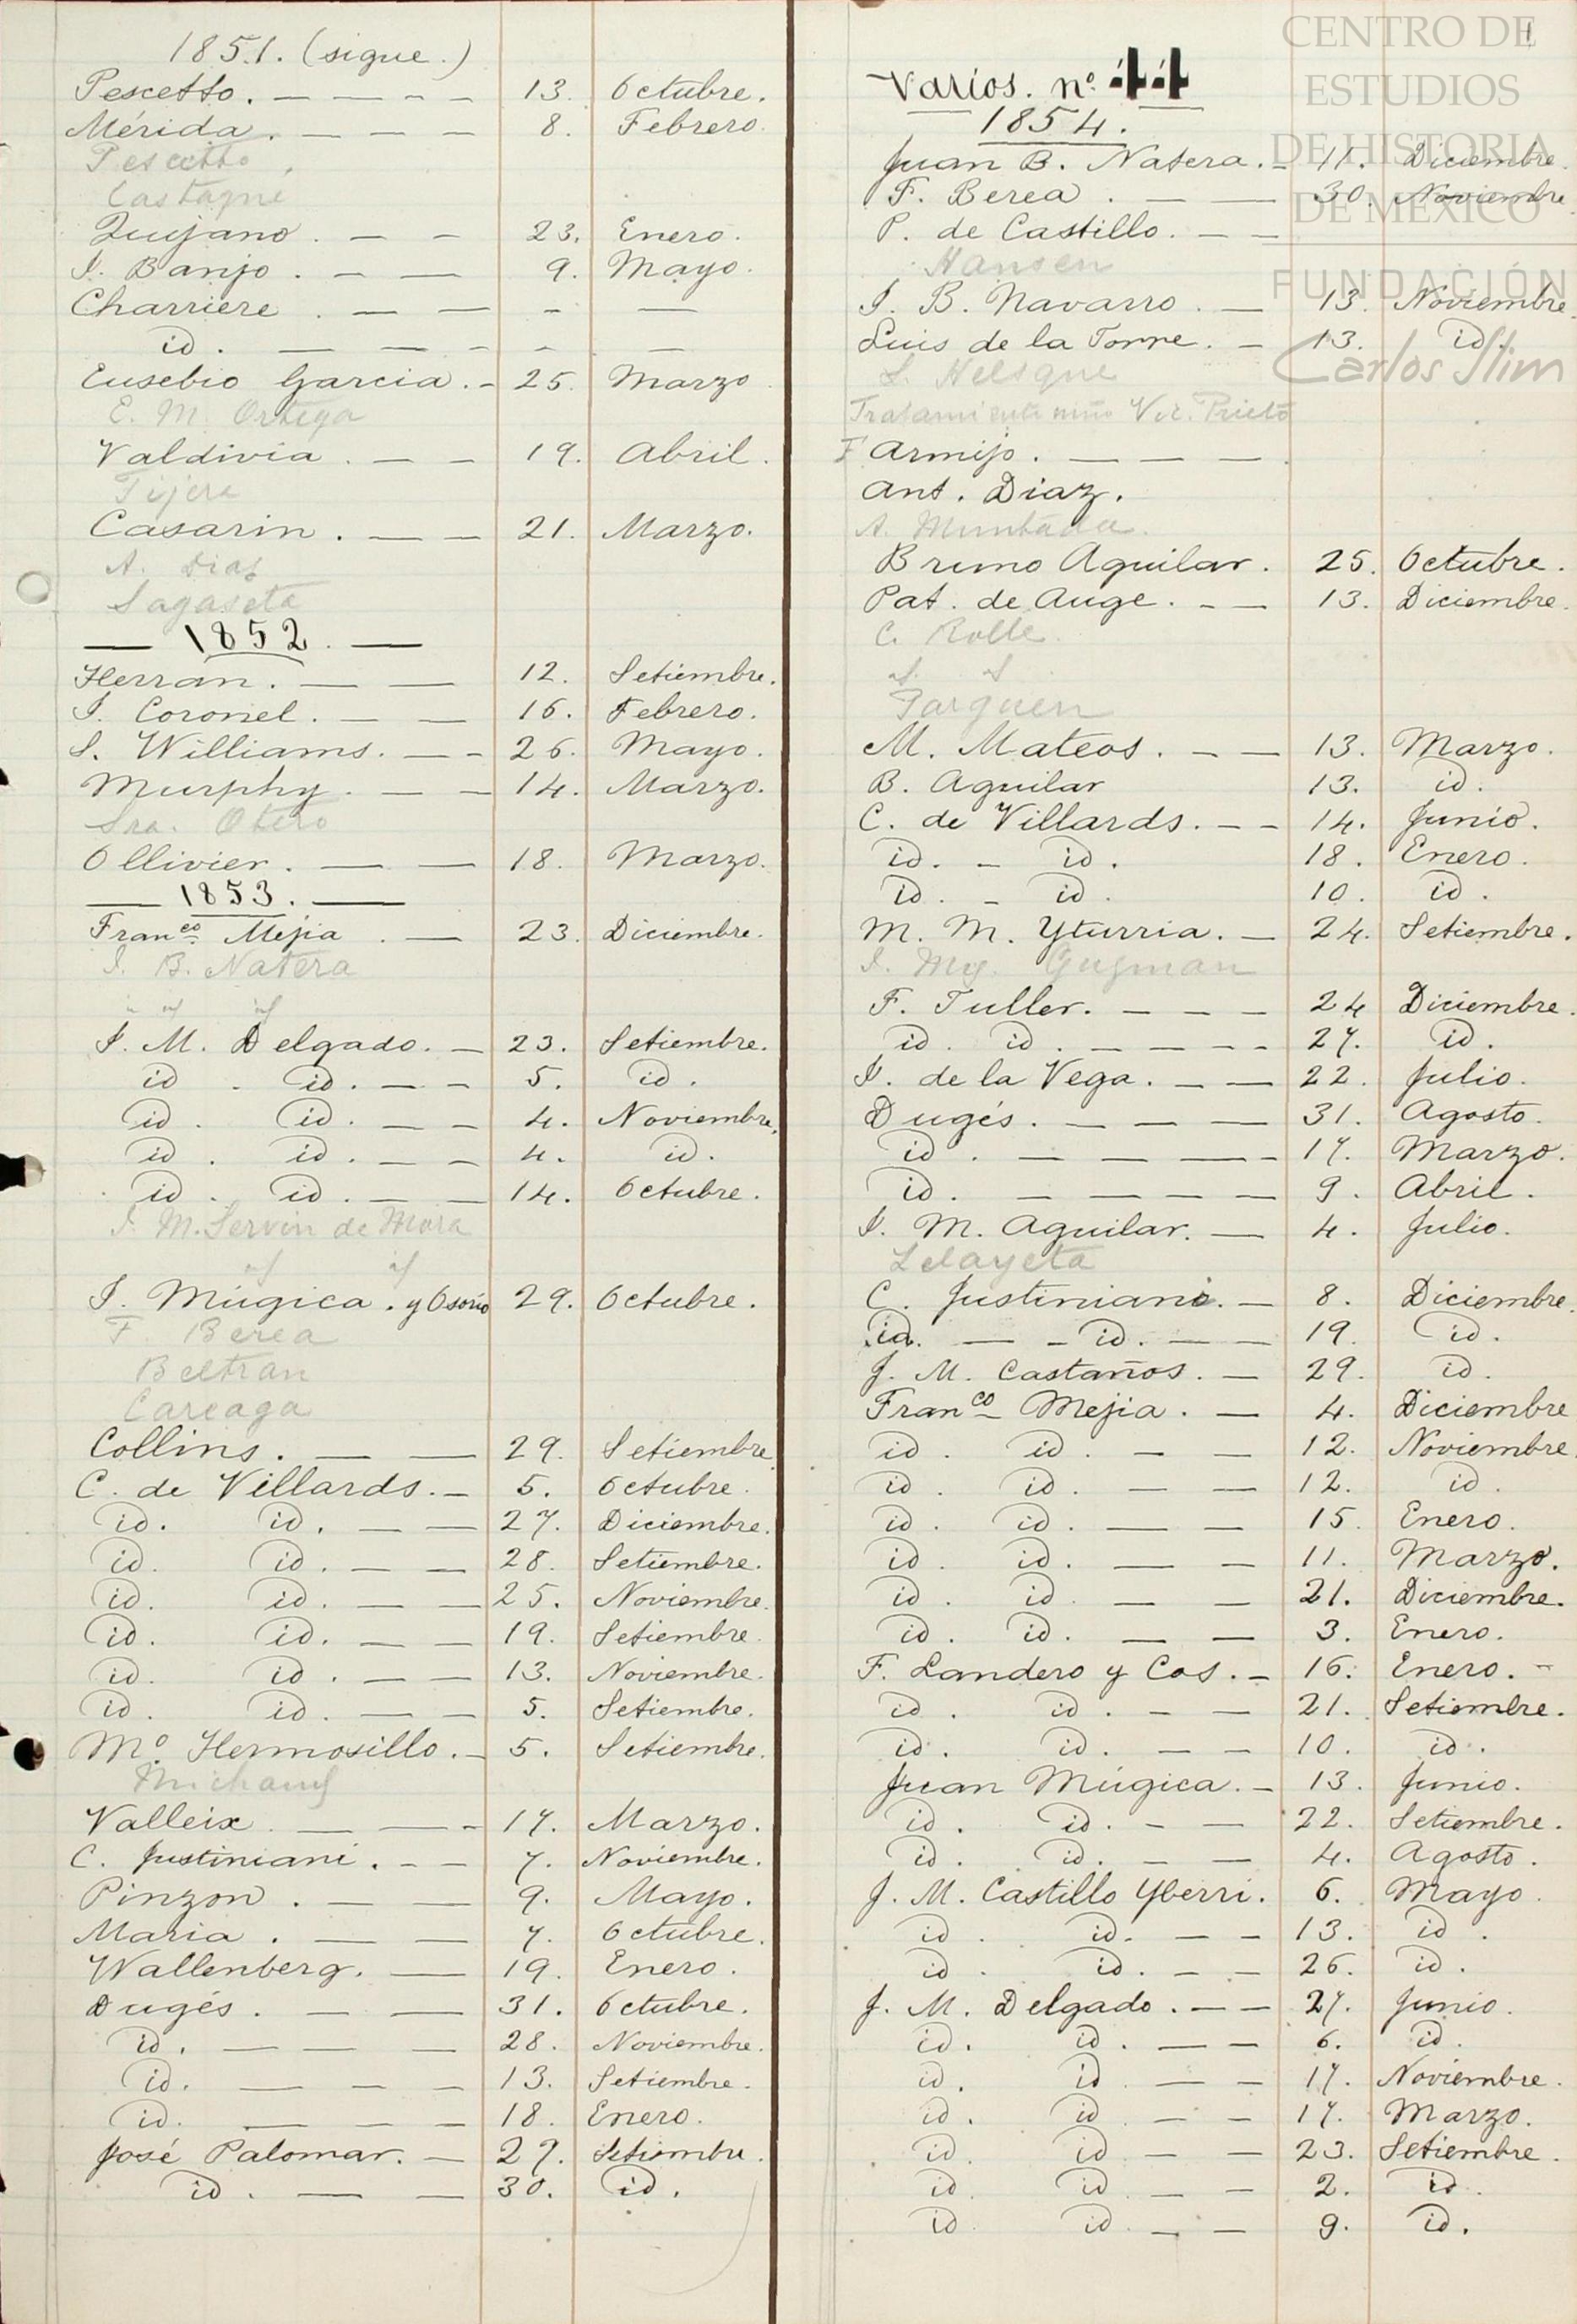 1851. (sigue.)
Pescetto. — — — — — 13. Octubre.
Mérida. — — — 8. Febrero.
Pescetto.
Castagne
Quijano. — — 23. Enero.
J. Banjo. — — 9. Mayo.
Charriere. — — — - —
id. — — — - - —
Eusebio Garcia. - 25. Marzo
E. M. Ortega
Valdivia. — — 19. Abril.
Tijera
Casarin. — — 21. Marzo.
A. Diaz
Sagaseta
— 1852. —
Herran. — — 12. Setiembre.
J. Coronel. — — 16. Febrero.
S. Williams. — - 26. Mayo.
Murphy. — — 14. Marzo.
Sra. Otero
Ollivier. — — 18. Marzo.
— 1853. —
Franco. Mejia. — 23. Diciembre.
J. B. Natera
J. M. Delgado. — 23. Setiembre.
id. id. — - 5. id.
id. id. — — 4. Noviembre.
id. id. — — 4. id.
id. id. — — 14. Octubre.
J. M. Servin de Mora
J. Múgica. y Osorio 29. Octubre.
F. Berea
Beltran
Careaga
Collins. — — 29. Setiembre
C. de Villards. — 5. Octubre.
id. id. — — 27. Diciembre.
id. id. — — 28. Setiembre.
id. id. — — 25. Noviembre.
id. id. — — 19. Setiembre.
id. id. — — 13. Noviembre.
id. id. — — 5. Setiembre.
Mo. Hermosillo. - 5. Setiembre.
Michaud
Valleix. — — - 17. Marzo.
C. Justiniani. - — 7. Noviembre.
Pinzon. — — 9. Mayo.
Maria. — — 7. Octubre.
Wallenberg. — 19. Enero.
Dugés. — — 31. Octubre.
id. — — — 28. Noviembre.
id. — — — 13. Setiembre.
id. — — — 18. Enero.
José Palomar. — 27. Setiembre.
id. — — 30. id.
Varios. no. 44
1854.
Juan B. Natera. - 11. Diciembre.
F. Berea. — — 30. Noviembre.
P. de Castillo. — —
Hansen
J. B. Navarro. — 13. Noviembre.
Luis de la Torre. - 13. id.
Tratamiento niño Vic. Prieto
F Armijo. — — —
Ant. Diaz.
A. Muntada.
Bruno Aguilar. 25. Octubre.
Pat. de Auge. - — 13. Diciembre.
C. Rolle.
M. Mateos. — — 13. Marzo.
B. Aguilar 13. id.
C. de Villards. - - 14. Junio.
id. - id. 18. Enero.
id. - id. 10. id.
M. M. Yturria. — 24. Setiembre.
J. Mg. Guzman
F. Tuller. — — — 24 Diciembre.
id. id. — — — - 27. id.
J. de la Vega. — — 22. Julio.
Dugés. — — — 31. Agosto.
id. — — — - 17. Marzo.
id. — — — — 9. Abril.
J. M. Aguilar. — 4. Julio.
Lelayeta
C. Justiniani. — 8. Diciembre.
id. — - id. — — 19. id.
J. M. Castaños. — 29. id.
Franco Mejia. — 4. Diciembre
id. id. — — 12. Noviembre.
id. id. — — 12. id.
id. id. — — 15. Enero.
id. id. — — 11. Marzo.
id. id. — — 21. Diciembre.
id. id. — — 3. Enero.
F. Landero y Cos. — 16. Enero. -
id. id. - — 21. Setiembre.
id. id. — — 10. id.
Juan Múgica. — 13. Junio.
id. id. - — 22. Setiembre.
id. id. — — 4. Agosto.
J. M. Castillo Yberri. 6. Mayo.
id. id. — — 13. id.
id. id. — — 26. id.
J. M. Delgado. — — 27. Junio.
id. id. — — 6. id.
id. id. — — 17. Noviembre.
id. id. — — 17. Marzo.
id. id. — — 23. Setiembre.
id. id. — — 2. id.
id id — — 9. id.
CENTRO DE
ESTUDIOS
DE HISTORIA
DE MÉXICO
FUNDACIÓN
Carlos Slim